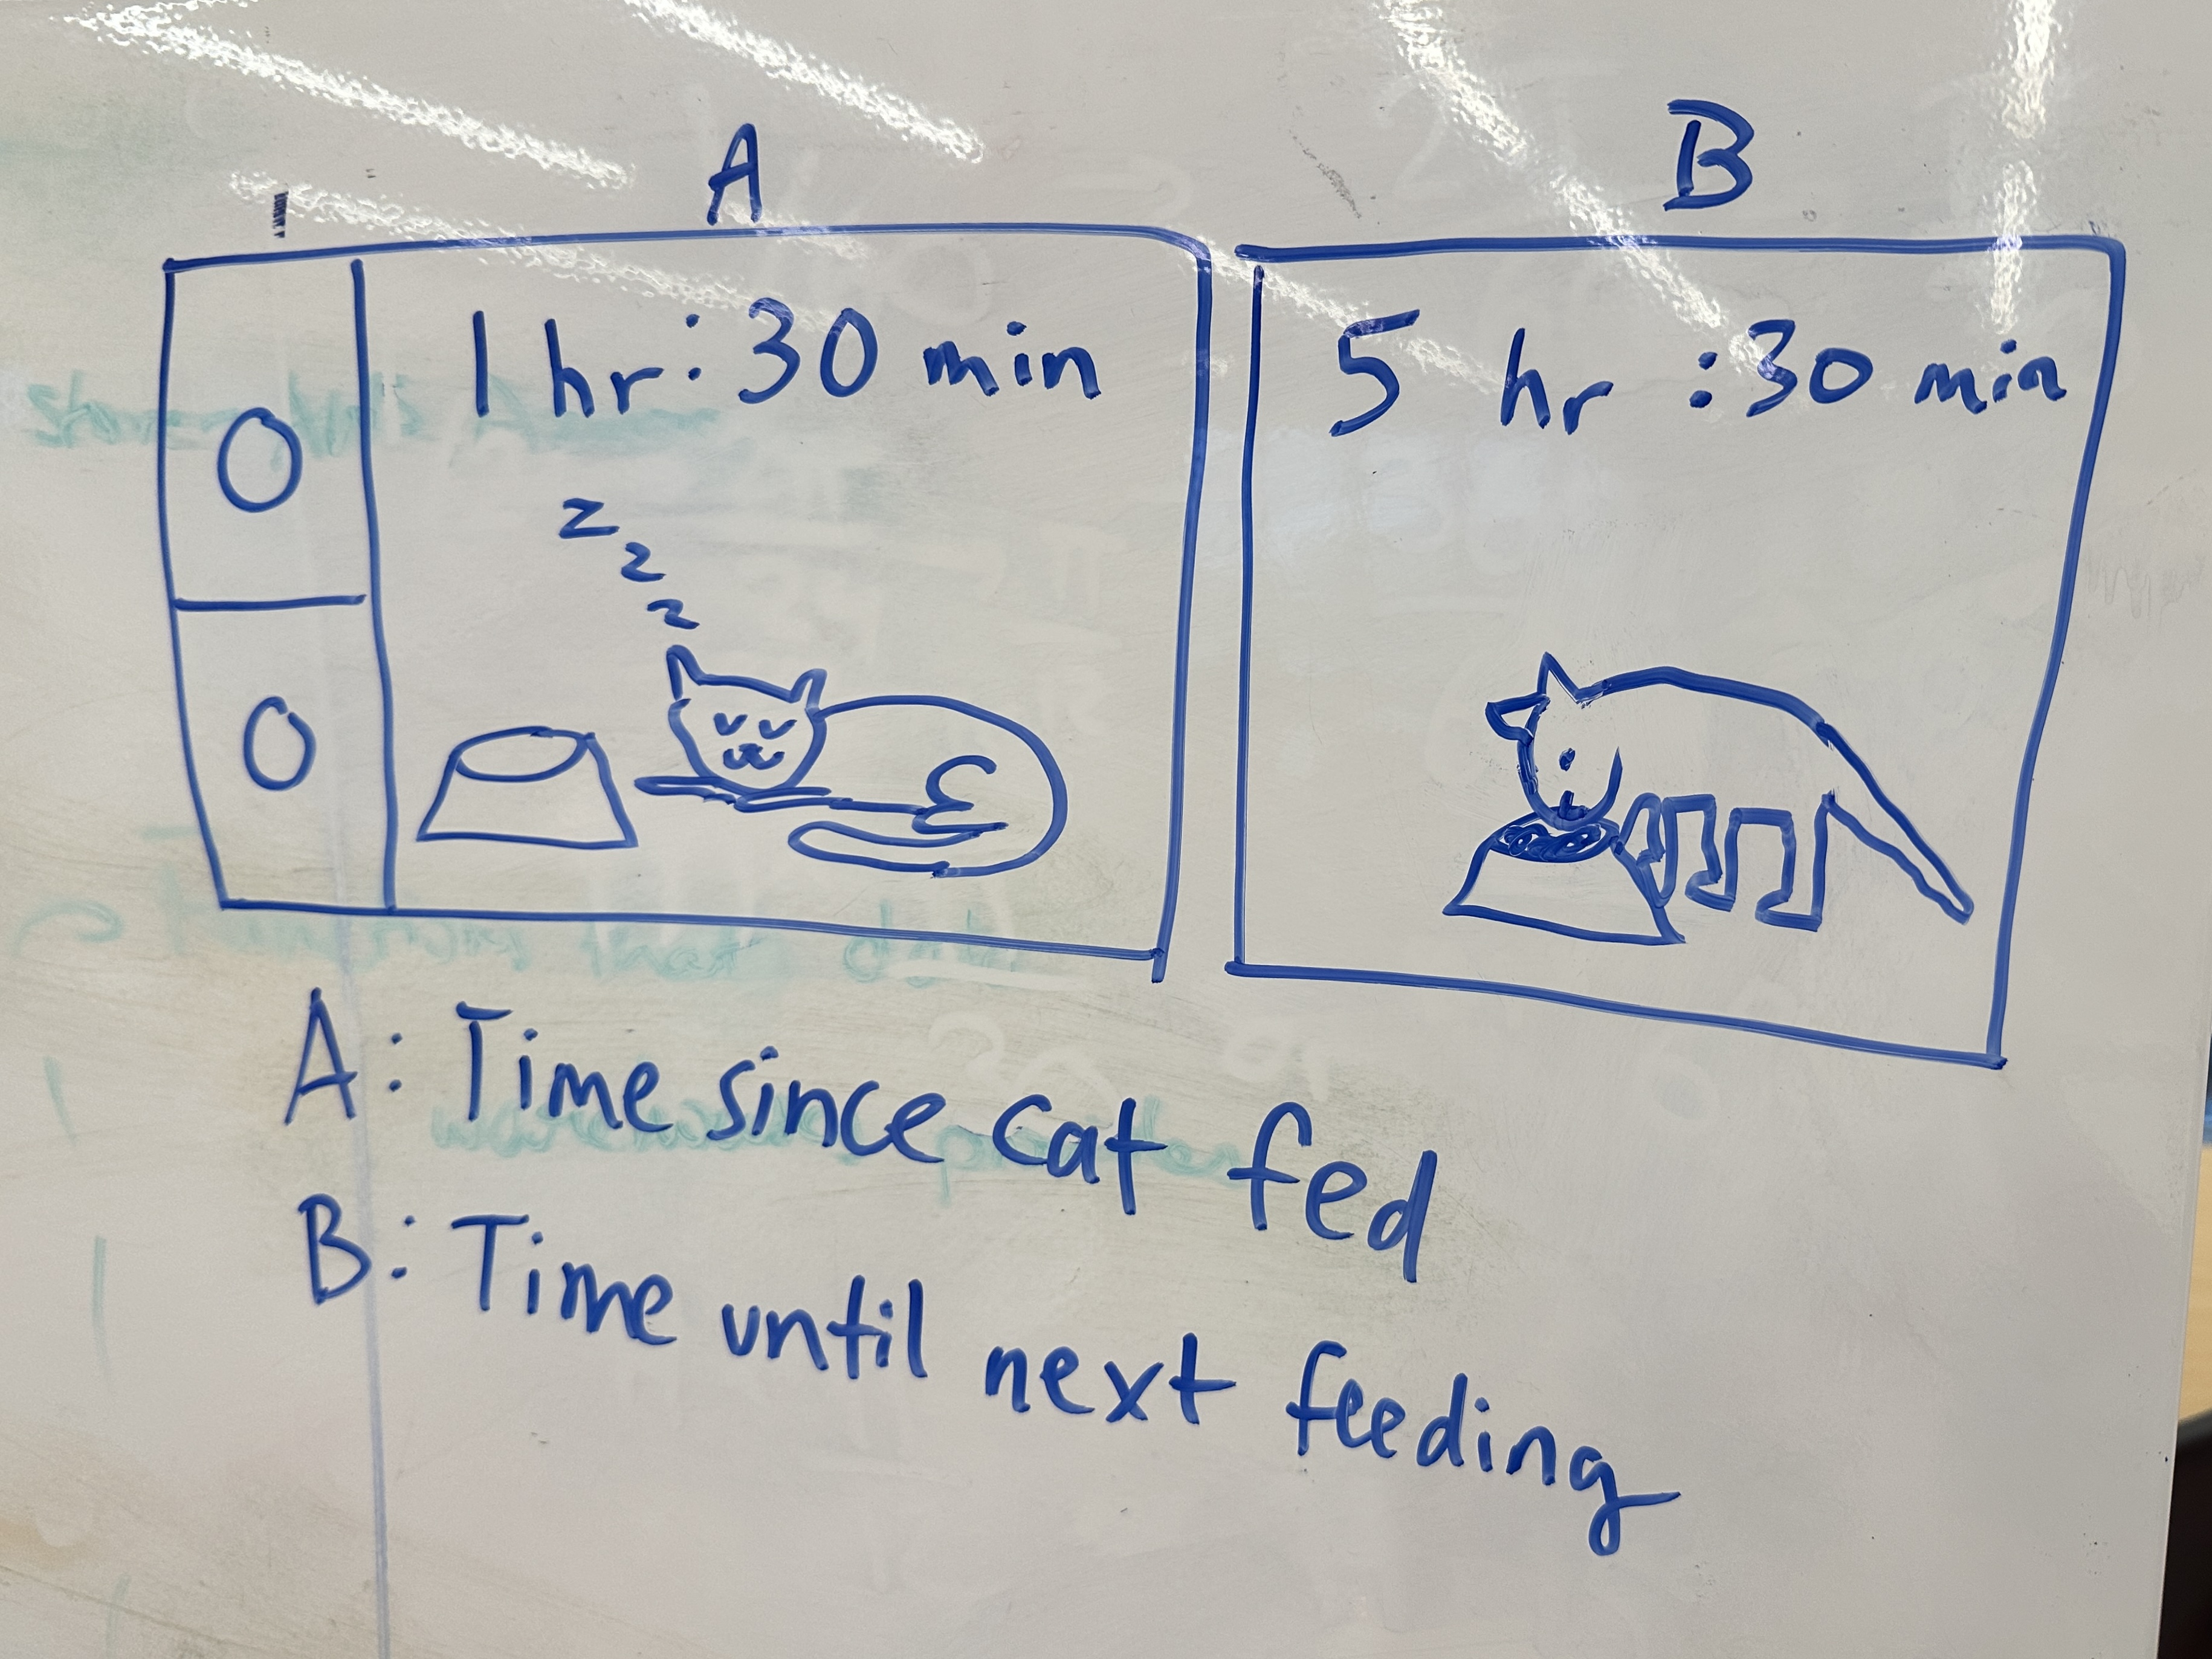 A B
1 hr : 30 min
5 hr : 30 min
z
z
z
A: Time since cat fed
B: Time until next feeding